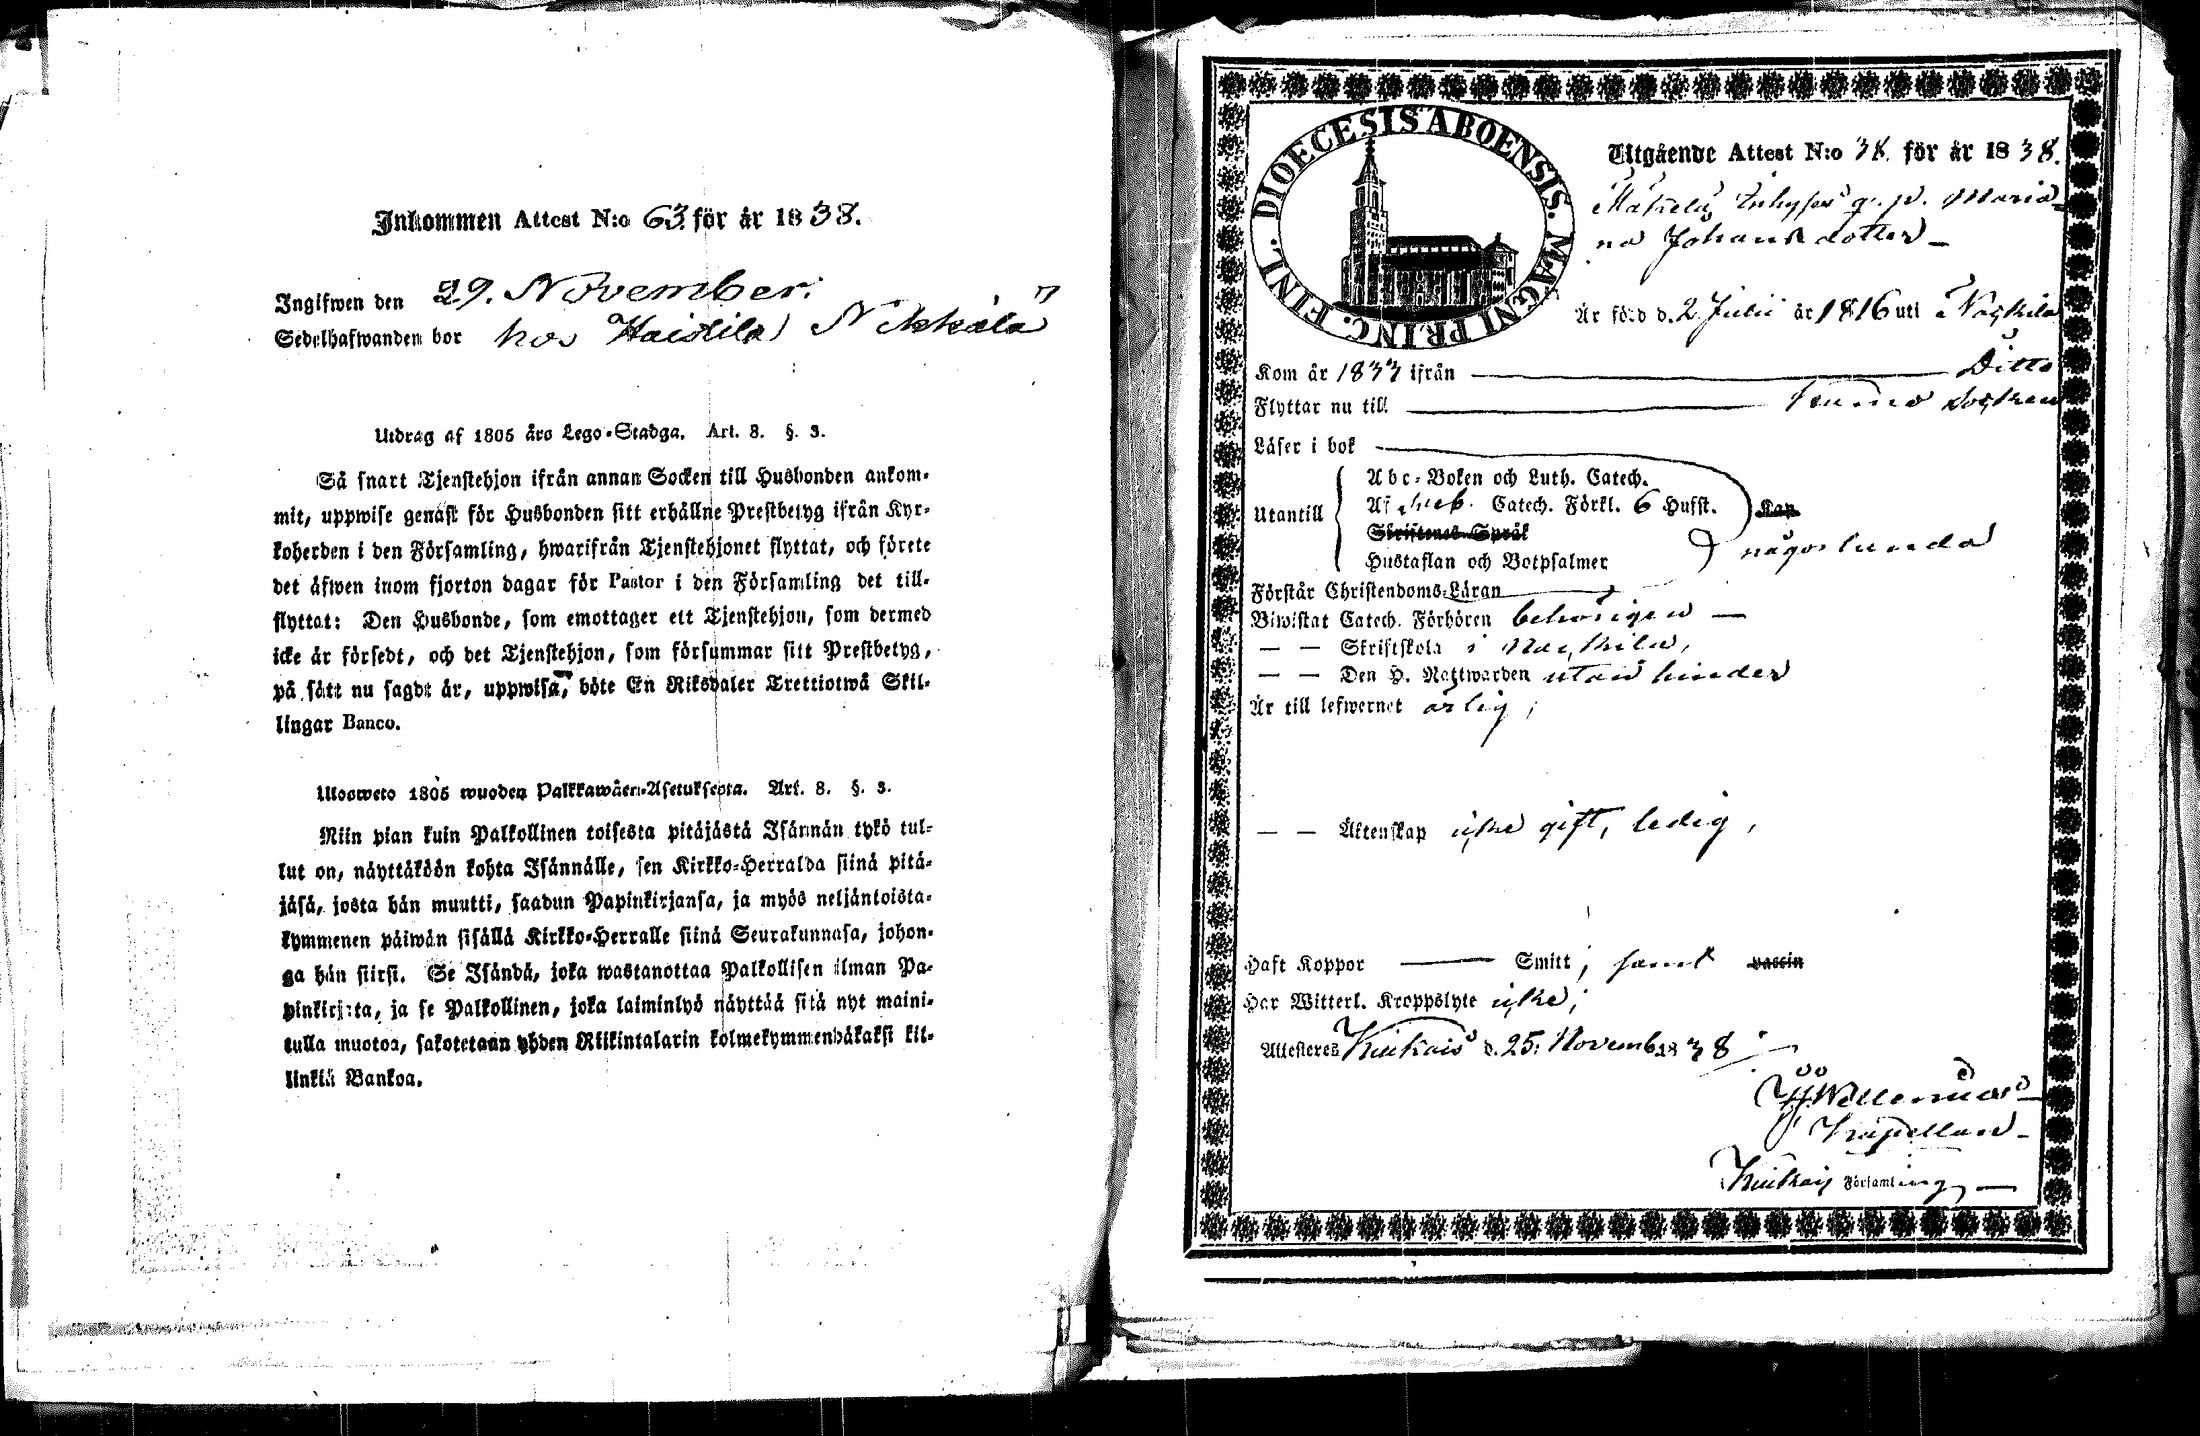 Inkommen Attest N:o 63 för år 1838.
Ingifwen den 29. November.
Sedelhafwanden bor hos Haistila Nikkälä
Utdrag af 1805 års Lego-Stadga. Art. 8. §. 3.
Så snart Tjenstehjon ifrån annan Socken till Husbonden ankom-
mit, uppwise genast för Husbonden sitt erhållne Prestbetyg ifrån Kyr-
koherden i den Församling, hwarifrån Tjenstehjonet flyttat, och förete
det äfwen inom fjorton dagar för Pastor i den Församling det till-
flyttat: Den Husbonde, som emottager ett Tjenstehjon, som dermed
icke är försedt, och det Tjenstehjon, som försummar sitt Prestbetyg,
på sätt nu sagdt är, uppwisa, böte En Riksdaler Trettiotwå Skil-
lingar Banco.
Ulosweto 1805 wuoden Palkkawäen-Asetuksesta. Art. 8. §. 3.
Niin pian kuin Palkollinen toisesta pitäjästä Isännän tykö tul-
lut on, näyttäköön kohta Isännälle, sen Kirkko-Herralda siinä pitä-
jäsä, josta hän muutti, saadun Papinkirjansa, ja myös neljäntoista-
kymmenen päiwän sisällä Kirkko-Herralle siinä Seurakunnasa, johon-
ga hän siirsi. Se Isändä, joka wastanottaa Palkollisen ilman Pa-
pinkirjata, ja se Palkollinen, joka laiminlyö näyttää sitä nyt maini-
tulla muotoa, sakotetaan yhden Riikintalarin kolmekymmendäkaksi kil-
linkiä Bankoa.
DIOECESIS ABOENSIS. MAGNI PRINC. FINL.
Utgående Attest N:o 38. för år 1838.
Mäkelä Inhyses p. Maria-
na Johansdotter
Är född d. 2 Julii år 1816 uti Nackila
Kom år 1837 ifrån Ditto
Flyttar nu till Socken
Läser i bok
Utantill
Abc-Boken och Luth. Catech.
Af Catech. Förkl. 6 Hufst.
Skriftenes Språk
Hustaflan och Botpsalmer
Kap
någorlunda
Förstår Christendoms-Läran
Biwistat Catech. Förhören behörigen
— — Skriftskola i Nackila,
— — Den H. Nattwarden utan hinder
Är till lefwernet ärlig;
— — Äktenskap icke gift, ledig,
Haft Koppor Smitt; samt vaccin
Har Witterl. Kroppslyte icke;
Attesteres Kiukais d. 25. Novemb. 1838
Wellenius
Kapellan
Kiukais Församling